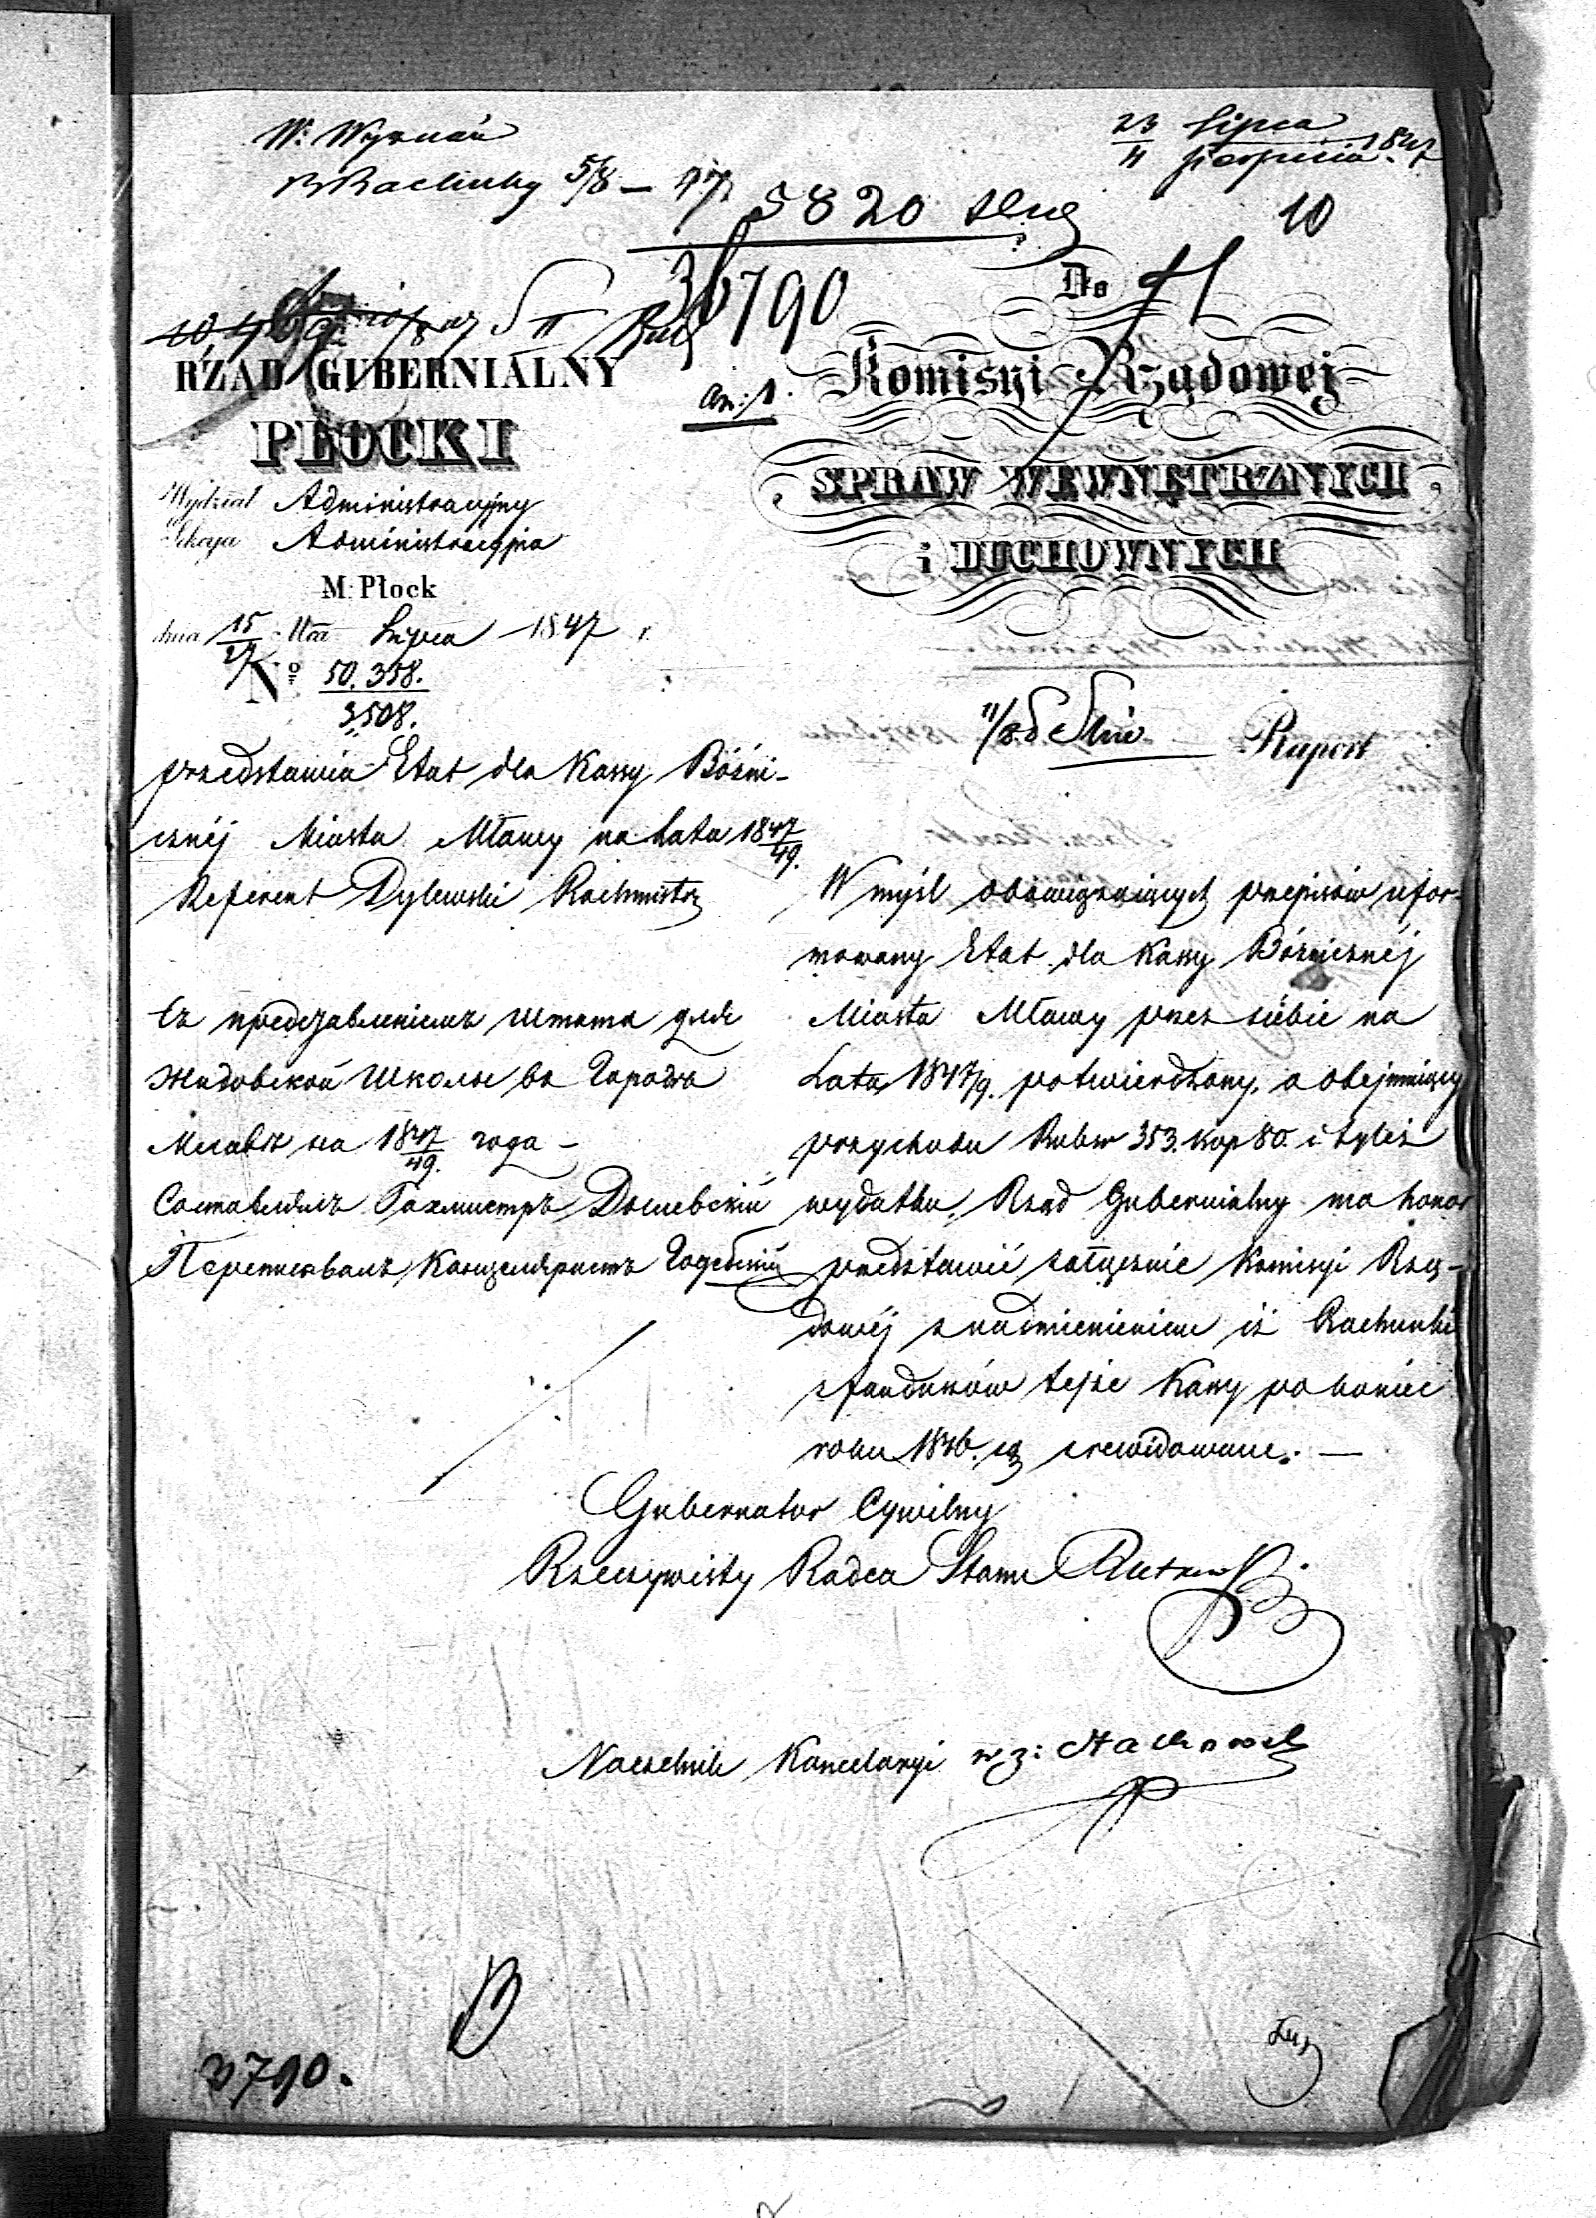 W: Wyznań
23 Lipca
4 Sierpnia 1847
5/8 — 47
5820
10
36790
Do
RZĄD GUBERNIALNY
an: 1.
Komisyi Rządowej
PŁOCKI
SPRAW WEWNĘTRZNYCH
Wydział Administracyjny
Sekcya Administracyjna
i DUCHOWNYCH
M: Płock
dnia 15/27 Mca Lipca 1847 r.
No 50,358.
3,508.
Raport
przedstawia Etat dla Kassy Bóżni-
cznéj Miasta Mławy na Lata 1847/49.
Referent Dylewski Rachmistrz
Съ представленіемъ Штата для
Жидовской Школы въ Городѣ
Млавѣ на 1847/49. года –
Составилъ Рахмистръ Дылевскій
Переписывалъ Канцеляристъ
W myśl obowiązujących przepisów ufor-
mowany Etat dla Kassy Bóżnicznéj
Miasta Mławy przez siebie na
Lata 1847/9. potwierdzony, a obejmujący
przychodu Rubsr 353. kop 80. i tyleż
wydatku, Rząd Gubernialny ma honor
przedstawić załącznie Komisyi Rzą-
dowéj z nadmienieniem iż Rachunki
z funduszów tejże Kassy po koniec
roku 1846. są zrewidowane. —
Gubernator Cywilny
Rzeczywisty Radca Stanu
Naczelnik Kancelaryi w z:
3790.